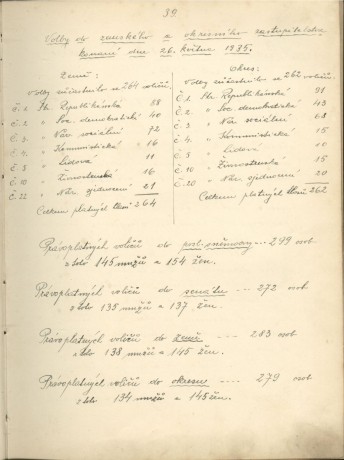 39.
Volby do zemského a okresního zastupitelstva
konané dne 26. května 1935.
Země:
Volby súčastnilo se 264 voličů.
č. 1 Str. Republikánská 88
č. 2 " Soc. demokratická 40
č. 3 " Nár. sociální 72
č. 4. " Komunistická 16
č. " Lidová 11
č. 10 " Živnostenská 16
č. 22 " Nár. sjednocení 21
Celkem platných hlasů 264
Okres:
Volby súčastnilo se 262 voličů.
č. 1. Str. Republikánská
č. 2 " Soc. demokratická 43
č. 3 " Nár. sociální 68
č. 4. " Komunistická 15
č. " Lidová 10
č. 10 " Živnostenská 15
č. 20 " Nár. sjednocení 20
Celkem platných hlasů 262
Právoplatných voličů do posl. sněmovny --- 299 osob
z toho 145 mužů a 154 žen.
Právoplatných voličů do senátu --- 272 osob
z toho 135 mužů a 137 žen.
Právoplatných voličů do země --- 283 osob
z toho 138 mužů a 145 žen.
Právoplatných voličů do okresu ---- 279 osob
z toho 134 mužů a 145 žen.